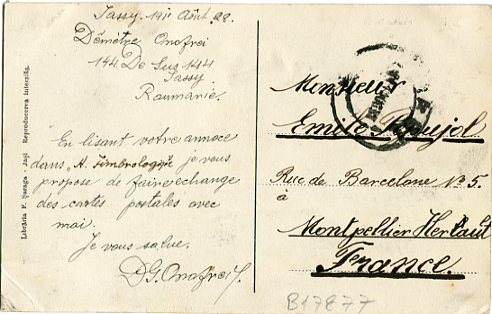 Jassy. 1911 Août 28.
Démètre Onofrei
144 De Sus 144
Jassy
Roumanie.
En lisant votre annoce
dans „A. Timbrologiţe je vous
propose de faire echange
des cartes postales avec
moi.
Je vous salue.
D G. Onofrei
Librăria P. Şaraga - Jaşi Reproducerea interzisă.
Monsieur
Emile Poujol
Rue de Barcelone Nº 5.
à
Montpellier Herault
France.
B17877